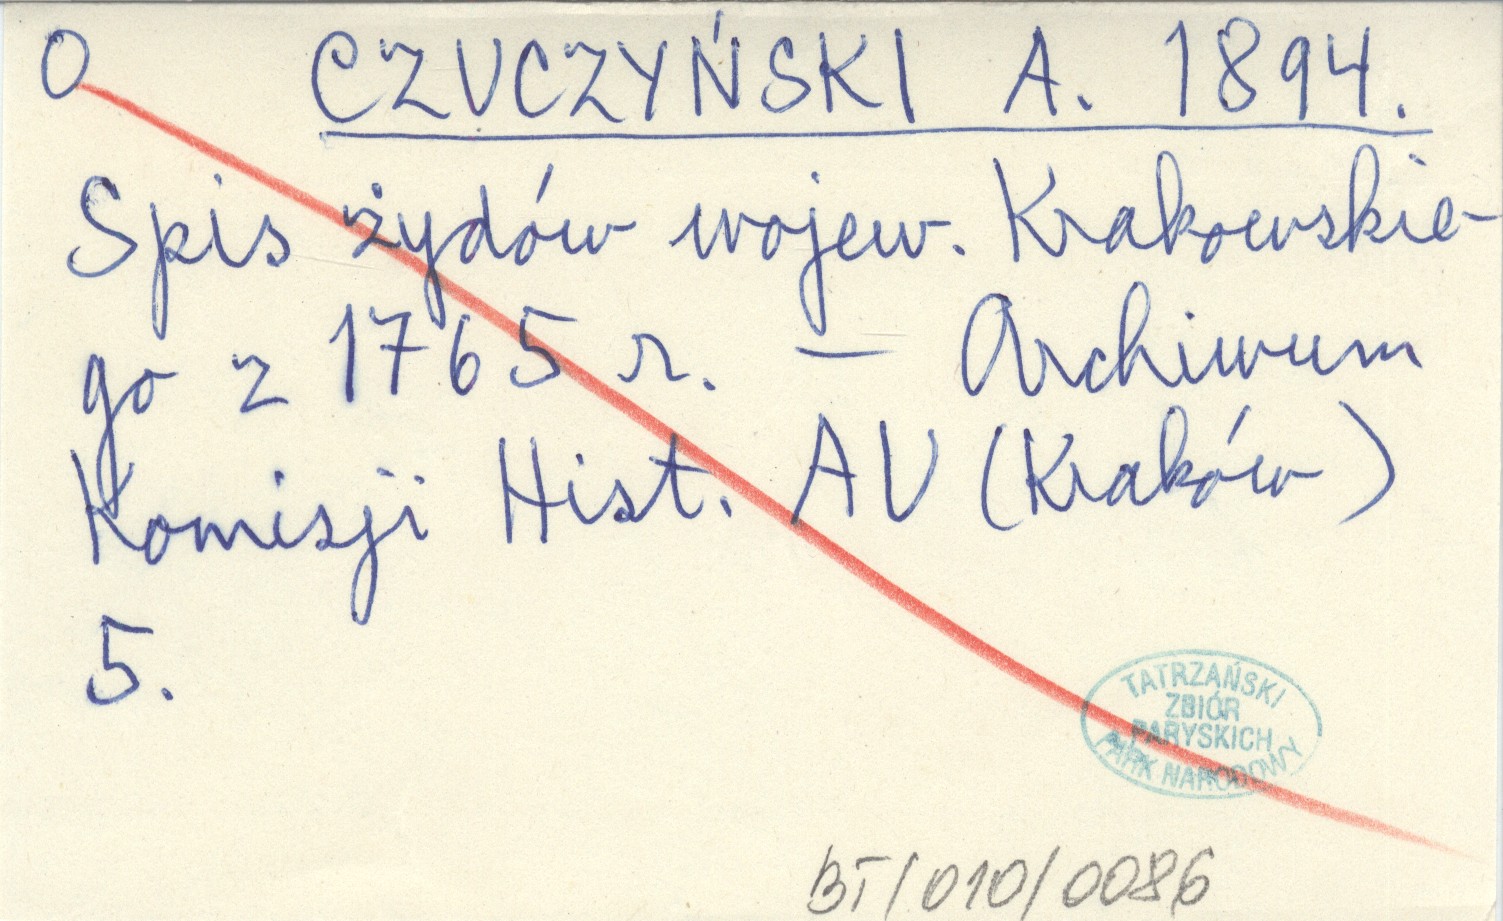 O CZUCZYŃSKI A. 1894.
Spis żydów wojew. Krakowskie-
go z 1765 r. — Archiwum
Komisji Hist. AU (Kraków)
5.
TATRZAŃSKI
ZBIÓR
PARYSKICH
PARK NARODOWY
BT/010/0086